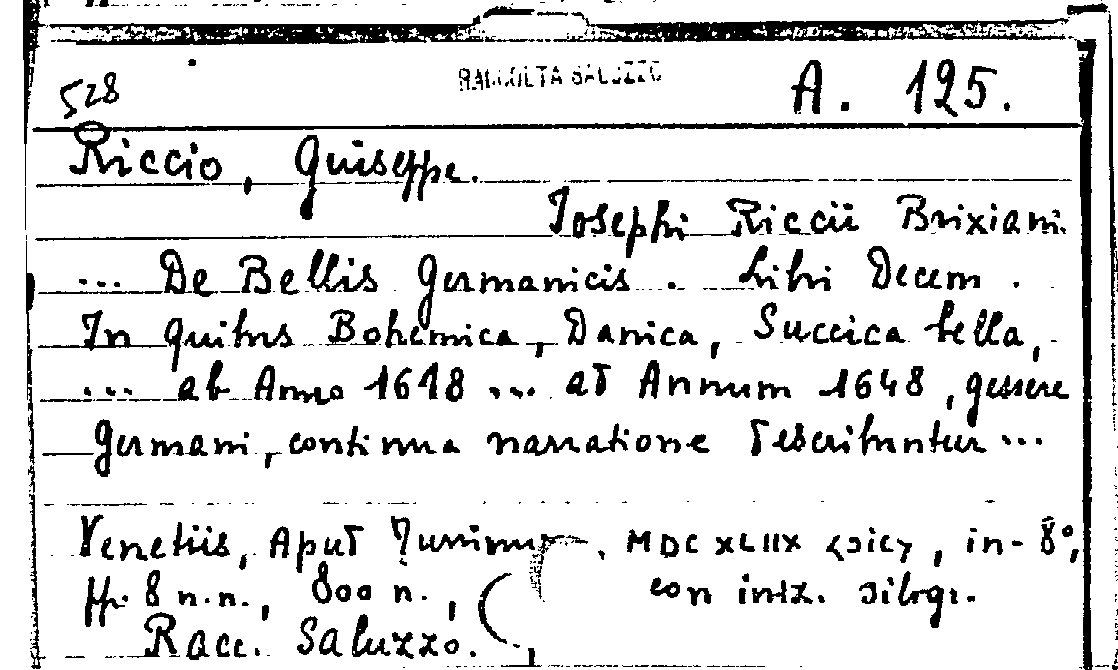 RACCOLTA SALUZZO
528 A. 125.
Riccio, Guiseppe.
Josephi Riccii Brixiani
... De Bellis Germanicis. Libri Decem.
In quibus Bohemica, Danica, Succica bella,
... ab Anno 1618 ... ad Annum 1648, gessere
Germani, continua narratione describuntur ...
Venetiis, Apud , MDCXLIIX <sic>, in-8°,
pp. 8 n.n., 800 n., con iniz. silogr.
Racc. Saluzzo.